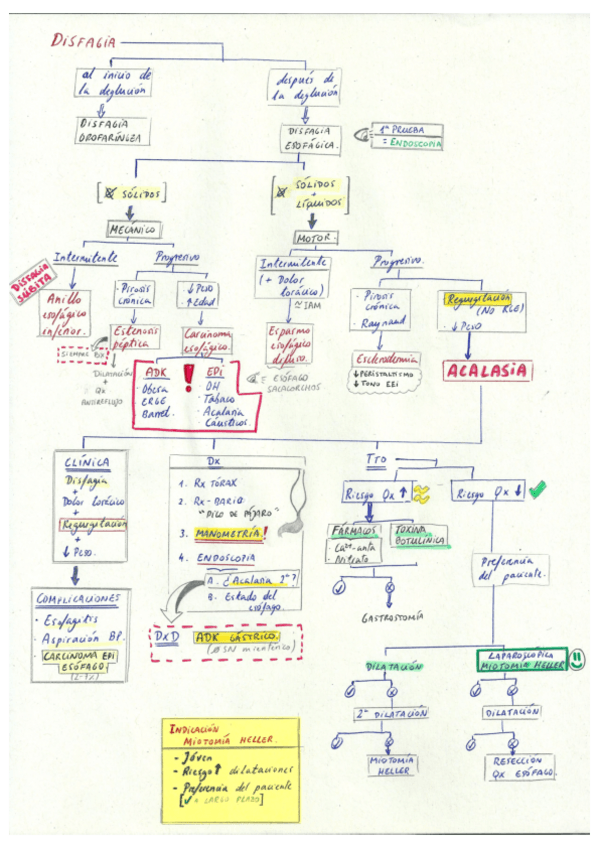 DISFAGIA
al inicio de
la deglución
después de
la deglución
DISFAGIA
OROFARÍNGEA
DISFAGIA
ESOFÁGICA.
1ª PRUEBA
= ENDOSCOPIA
SÓLIDOS
SÓLIDOS
+
LÍQUIDOS
MECÁNICO
MOTOR.
Intermitente
Progresivo
Intermitente
(+ Dolor
torácico)
≃ IAM
Progresivo.
DISFAGIA
SÚBITA
Anillo
esofágico
inferior.
· Pirosis
crónica
· ↓ Peso
· ↑ Edad
· Pirosis
crónica
· Raynaud
Regurgitación
(No RGE)
· ↓ Peso
Estenosis
péptica
SIEMPRE BQ
DILATACIÓN
+
QX
ANTIRREFLUJO
Carcinoma
esofágico
Espasmo
esofágico
difuso.
= ESÓFAGO
SACACORCHOS
Esclerodermia
↓ PERISTALTISMO
↓ TONO EEI
ACALASIA
ADK
· Obesa
· ERGE
· Barret.
!
EPI
· OH
· Tabaco
· Acalasia
· Cáusticos.
CLÍNICA
Disfagia
+
Dolor torácico
+
Regurgitación
+
↓ Peso.
COMPLICACIONES
· Esofagitis
· Aspiración BP.
· CARCINOMA EPI
ESÓFAGO
Dx
1. Rx TÓRAX
2. Rx-BARIO
"PICO DE PÁJARO"
3. MANOMETRÍA!
4. ENDOSCOPIA
A. ¿Acalasia 2ª?
B. Estado del
esófago.
DxD
ADK GÁSTRICO.
TTO
Riesgo Qx ↑
Riesgo Qx ↓
FÁRMACOS
· Ca²⁺-anta
· Nitrato
TOXINA
BOTULÍNICA
GASTROSTOMÍA
Preferencia
del paciente.
DILATACIÓN
LAPAROSCÓPICA
MIOTOMIA HELLER
2ª DILATACIÓN
DILATACIÓN
MIOTOMIA
HELLER
RESECCIÓN
QX ESÓFAGO.
INDICACIÓN
MIOTOMÍA HELLER.
- Jóven
- Riesgo ↑ dilataciones
- Preferencia del paciente
[✓ a LARGO PLAZO]